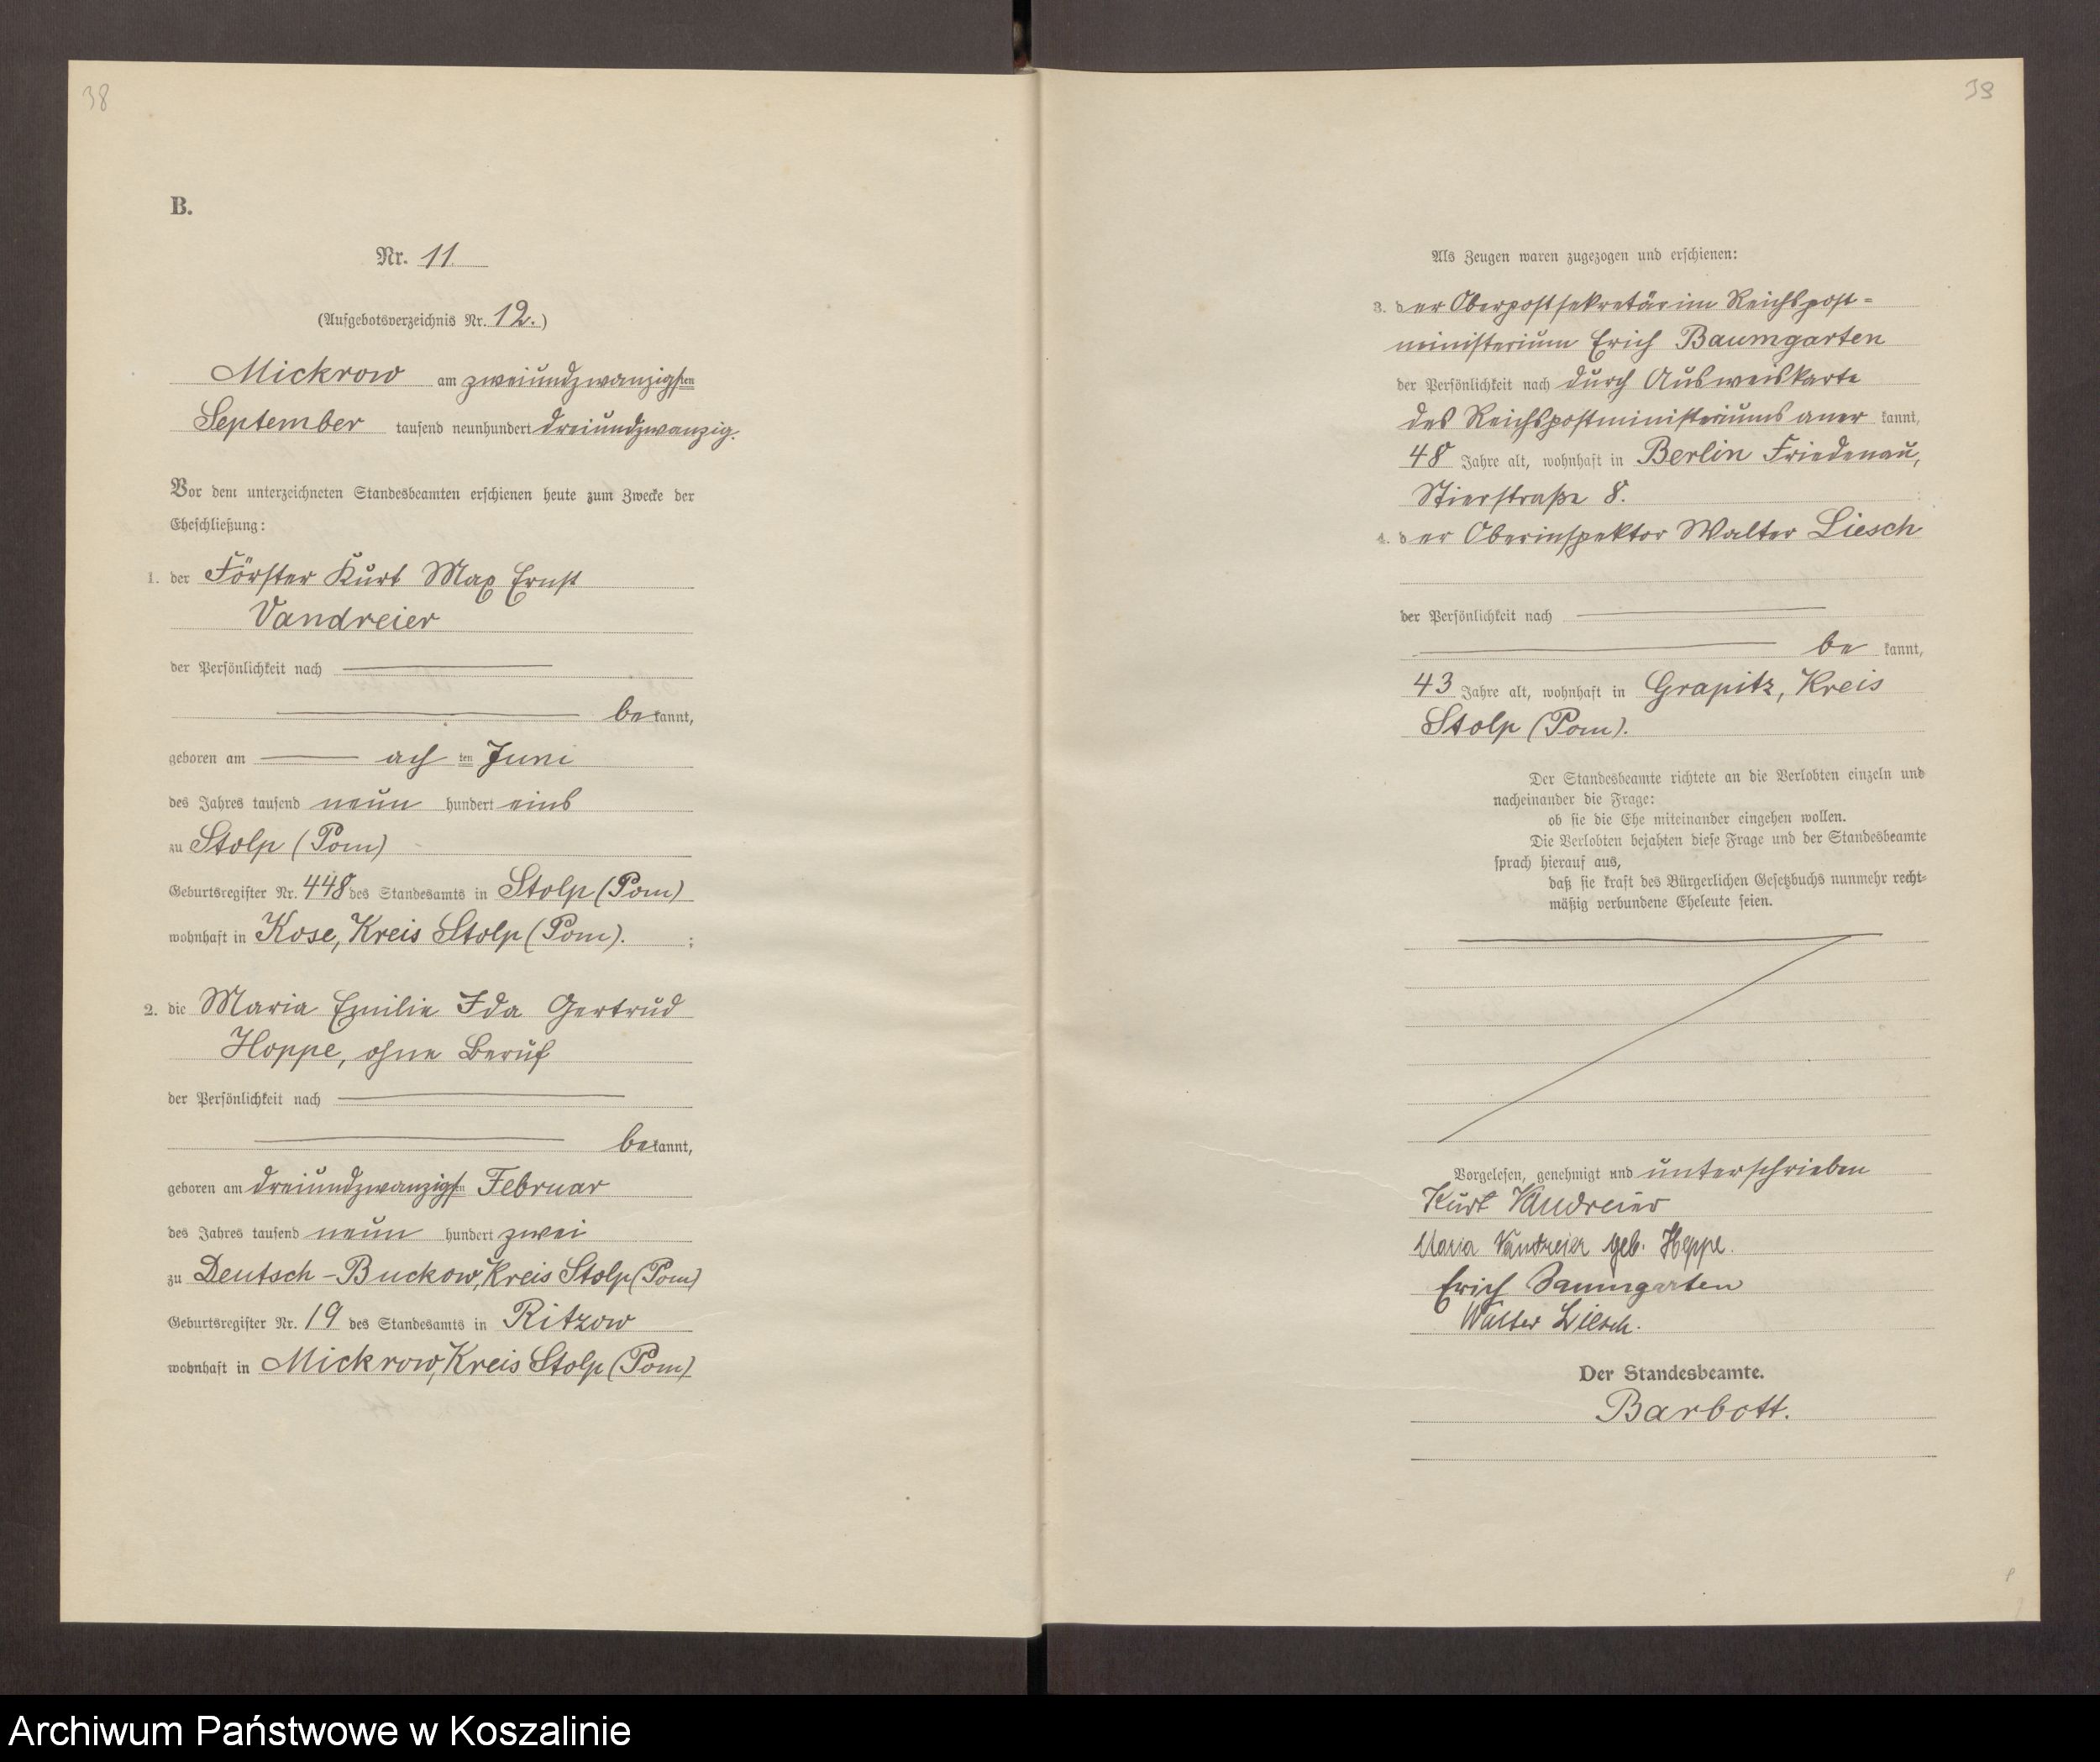 38
B.
Nr. 11
(Aufgebotsverzeichnis Nr. 12.)
Mickrow am zweiundzwanzigsten
September tausend neunhundert dreiundzwanzig.
Vor dem unterzeichneten Standesbeamten erschienen heute zum Zwecke der
Eheschließung:
1. der Förster Kurt Max Ernst
Vandreier
der Persönlichkeit nach
bekannt,
geboren am ach ten Juni
des Jahres tausend neun hundert eins
zu Stolp (Pom)
Geburtsregister Nr. 448 des Standesamts in Stolp (Pom)
wohnhaft in Kose, Kreis Stolp (Pom). ;
2. die Maria Emilie Ida Gertrud
Hoppe, ohne Beruf
der Persönlichkeit nach
bekannt,
geboren am dreiundzwanzigsten Februar
des Jahres tausend neun hundert zwei
zu Deutsch-Buckow, Kreis Stolp (Pom)
Geburtsregister Nr. 19 des Standesamts in Ritzow
wohnhaft in Mickrow, Kreis Stolp (Pom)
39
Als Zeugen waren zugezogen und erschienen:
3. der Oberpostsekretär im Reichspost=
ministerium Erich Baumgarten
der Persönlichkeit nach durch Ausweiskarte
des Reichspostministeriums aner kannt,
48 Jahre alt, wohnhaft in Berlin Friedenau,
Stierstraße 8.
4. der Oberinspektor Walter Liesch
der Persönlichkeit nach
be kannt,
43 Jahre alt, wohnhaft in Grapitz, Kreis
Stolp (Pom).
Der Standesbeamte richtete an die Verlobten einzeln und
nacheinander die Frage:
ob sie die Ehe miteinander eingehen wollen.
Die Verlobten bejahten diese Frage und der Standesbeamte
sprach hierauf aus,
daß sie kraft des Bürgerlichen Gesetzbuchs nunmehr recht=
mäßig verbundene Eheleute seien.
Vorgelesen, genehmigt und unterschrieben
Kurt Vandreier
Maria Vandreier geb. Hoppe.
Erich Baumgarten
Walter Liesch.
Der Standesbeamte.
Barbott.
Archiwum Państwowe w Koszalinie